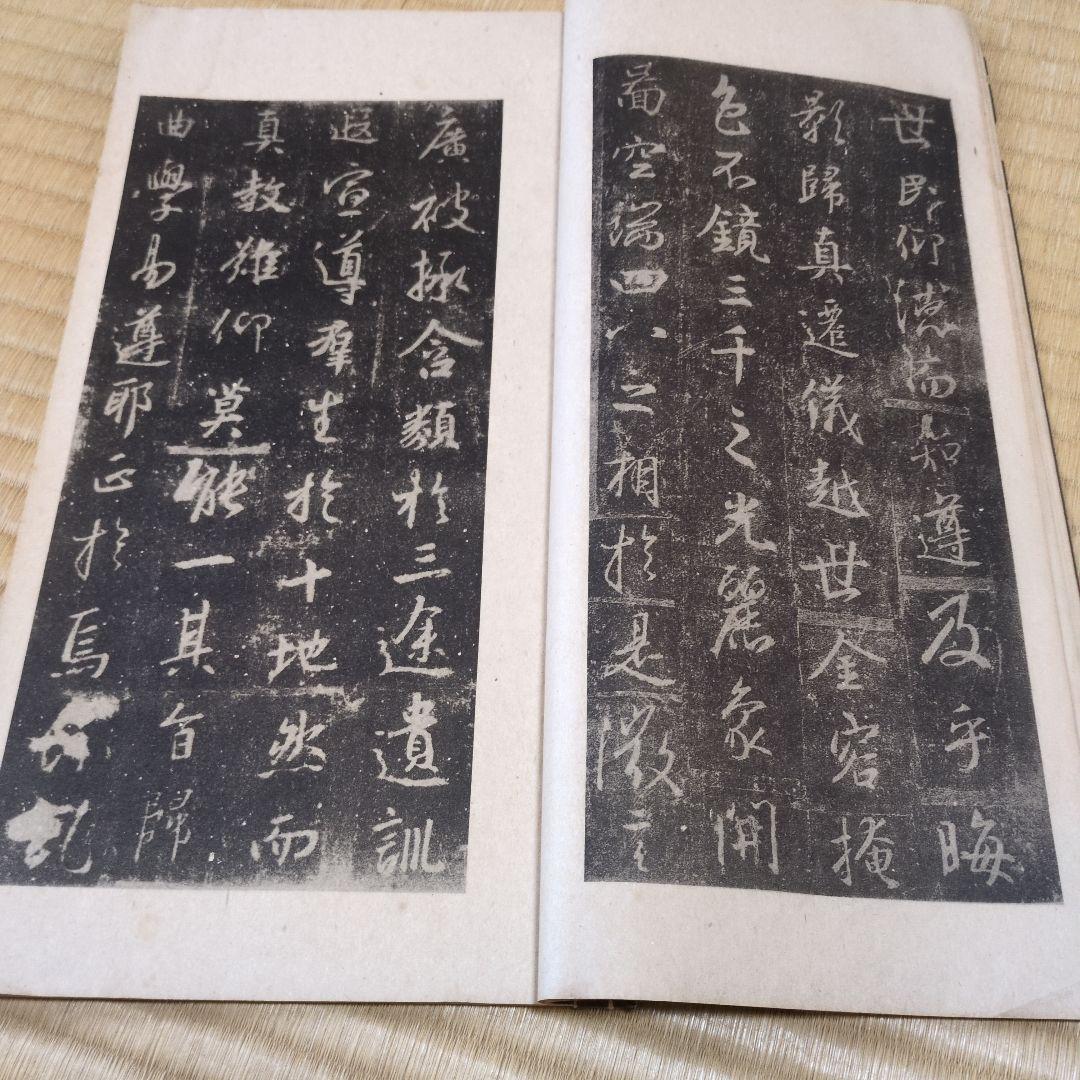 世民仰德而知遵及乎晦
影歸真遷儀越世金容掩
色不鏡三千之光麗象開
啚空端四八之相於是微言
廣被拯含類於三途遺訓
遐宣導羣生於十地然而
真教難仰莫能一其旨歸
曲學易遵耶正於焉紛糺